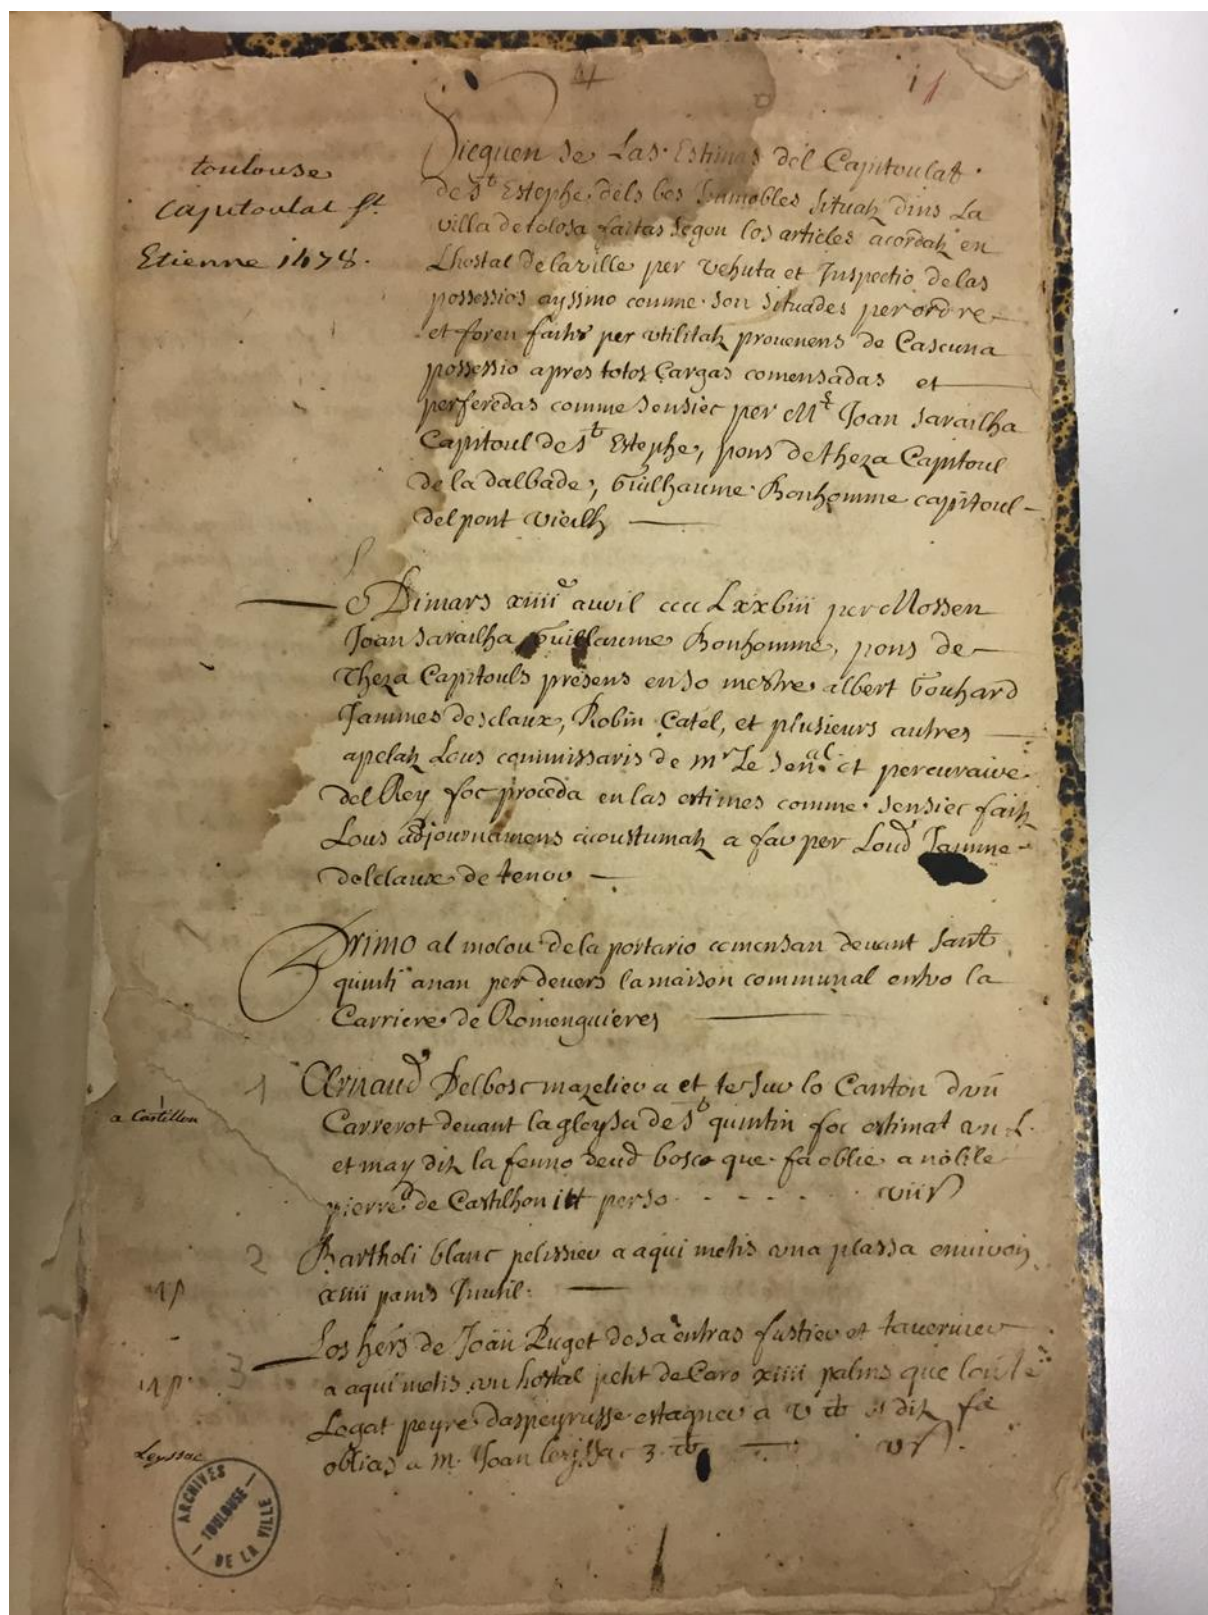 1
toulouse
Capitoulat St.
Etienne 1478.
Sieguen se Las Estimas del Capitoulat
de St Estephe dels bes Inmobles situatz dins La
villa de tolosa faitas segon los articles acordatz en
Lhostal de la ville per vehuta et Inspectio de las
possessios ayssimo comme son situades per ordre
et foren faits per utilitatz provenens de Cascuna
possessio apres totos Cargas comensadas et
perferedas comme sensiec per Mr Joan Sarailha
Capitoul de St Estephe, pons de theza Capitoul
de la dalbade, Guilhaume Bonhomme capitoul
del pont vieilh
Dimars xiiii avril cccc Lxxbiii per Mossen
Joan Sarailha Guillaume Bonhomme, pons de
Theza Capitouls presens enso mestre albert Gouhard
Jammes desclaux, Robin Catel, et plusieurs autres
apelatz Lous commissaris de mr Le Senal et percuraire
del Rey foc proceda en las estimes comme sensiec faitz
Lous adjournamens acoustumatz a far per Loud Jamme
delclaux de tenor
Primo al molou de la portario comensan devant sant
quinti anan per devers la maison communal entro la
Carriere de Romenguieres
1 Arnaud Delbosc mazelier a et te sur lo Canton dun
a Castillon
Carrerot devant la gleysa de St quintin foc estimat un L.
et may ditz la fenno deud bosc que fa oblie a noble
pierre de Castilhon itt per so viiς
2 Bartholi blanc pelissier a aqui metis una plassa environ
xiiii pams Inutil
1p
3 Los hers de Joan Puget desa entras fustier et tavernier
1p
a aqui metis un hostal petit de Caro xiiii palms que
Logat peyre daspeyrusse estagner a v tt et ditz fa
oblias a m. Joan Leyssac 3 tt vς
Leyssac
ARCHIVES
TOULOUSE
DE LA VILLE